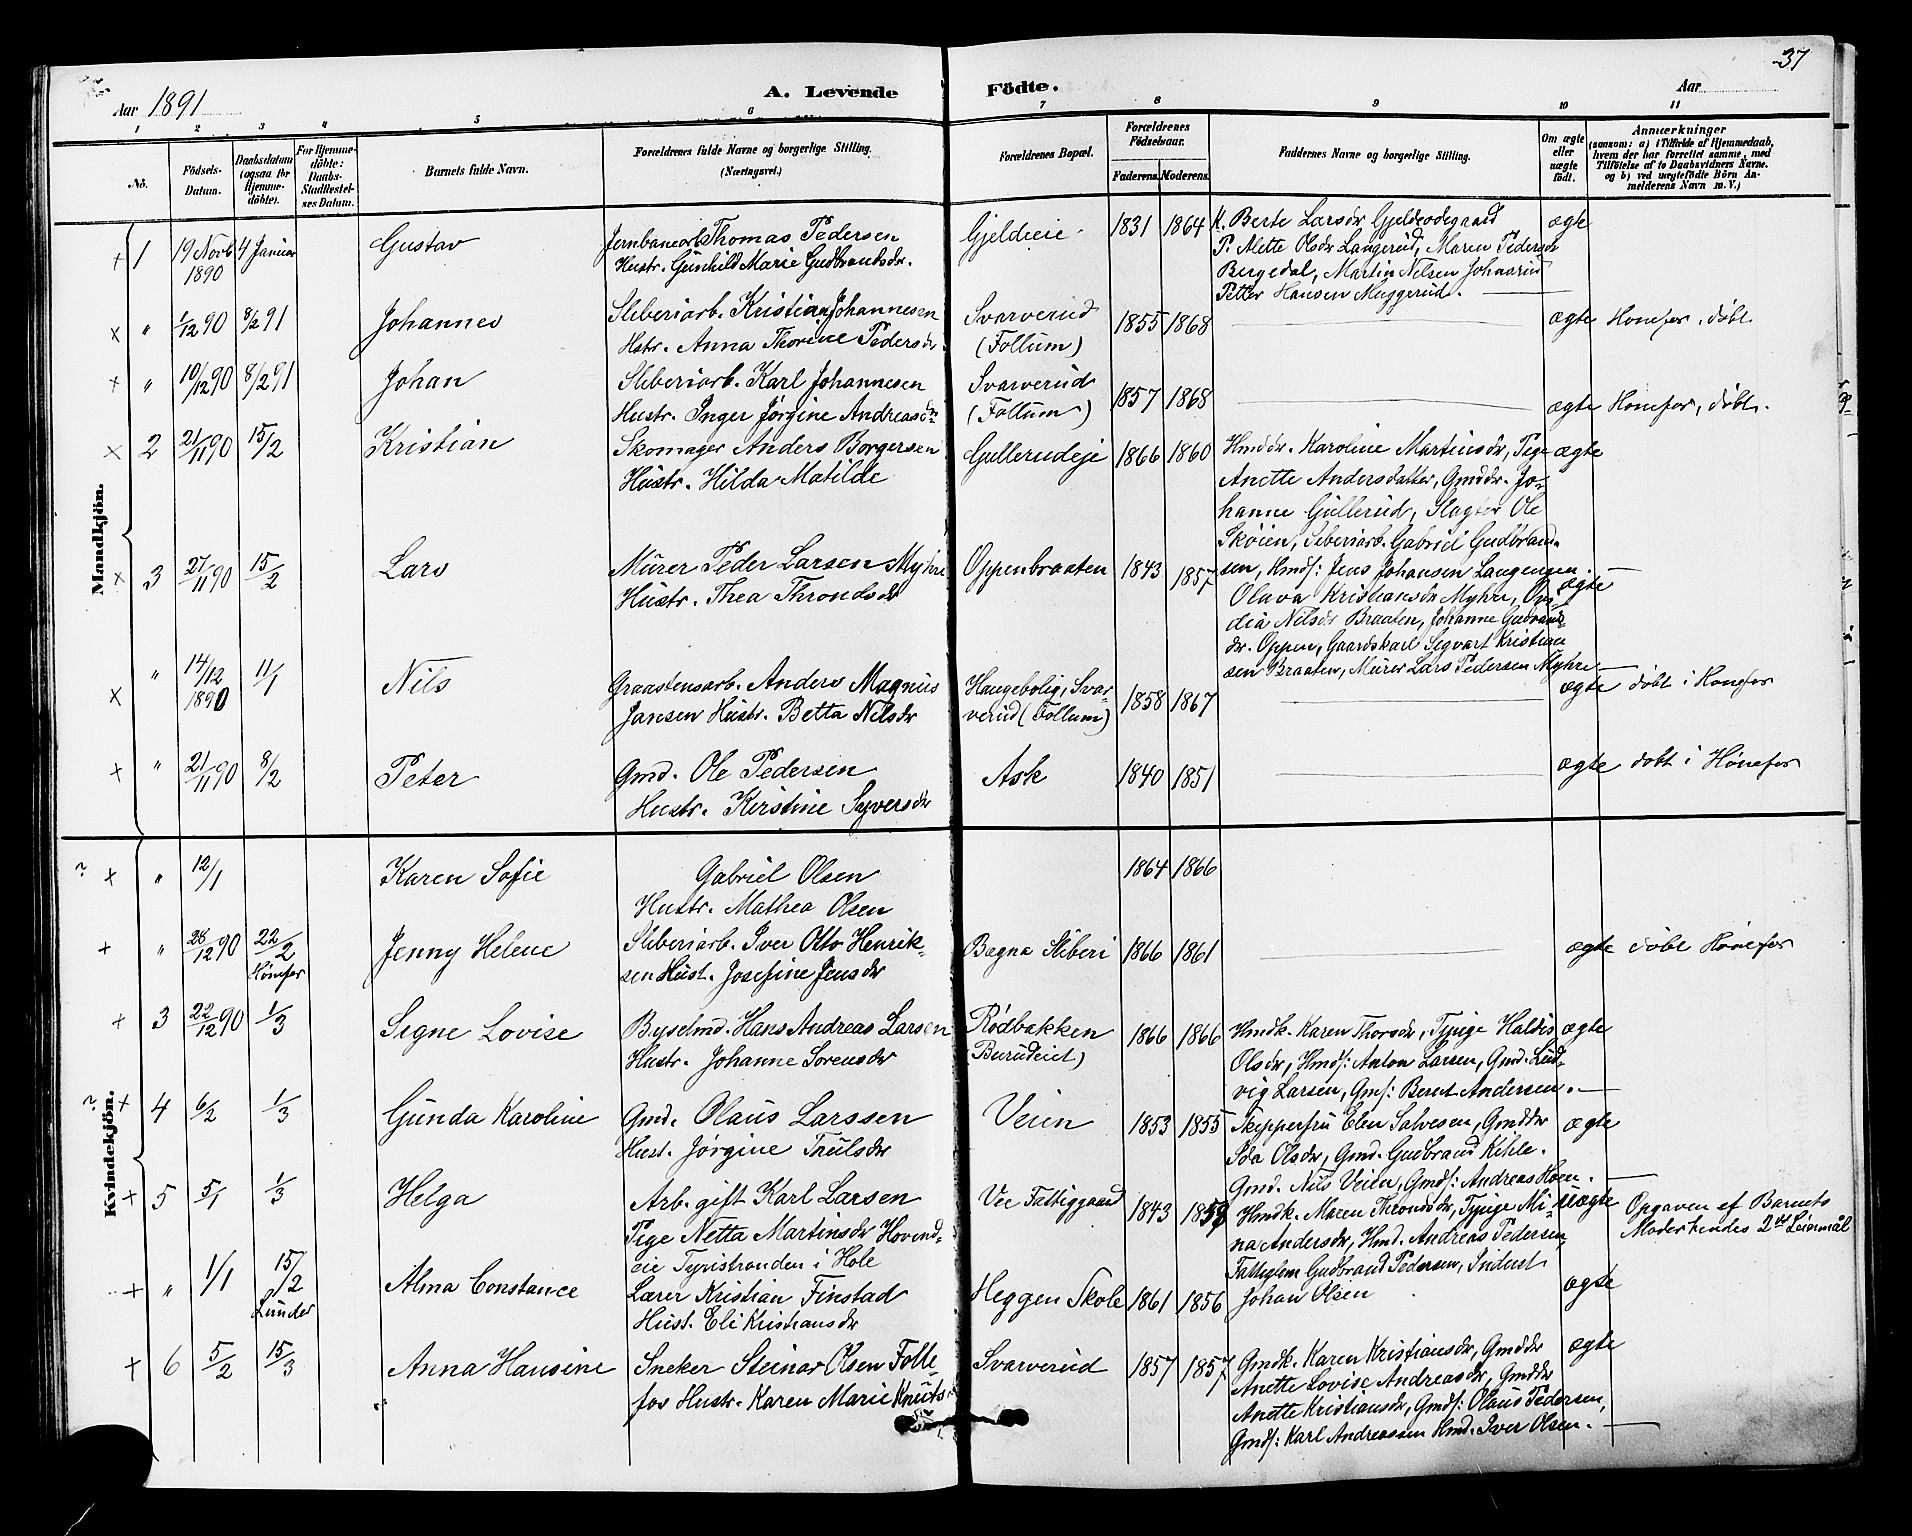 37
Aar 1891
A. Levende Födte.
Aar
1 2 3 4 5 6 7 8 9 10 11
No.
Födsels-Datum.
Daabsdatum (ogsaa for Hjemme-döbte).
For Hjemme-döbte: Daabs-Stadfæstel-ses Datum.
Barnets fulde Navn.
Forældrenes fulde Navne og borgerlige Stilling.
(Næringsvei.)
Forældrenes Bopæl.
Forældrenes Födselsaar.
Faderens. Moderens.
Faddernes Navne og borgerlige Stilling.
Om ægte eller uægte födt.
Anmærkninger
(saasom: a) i Tilfælde af Hjemmedaab, hvem der har forrettet samme, med Tilföielse af to Daabsvidners Navne. og b) ved uægtefödte Börn An-melderens Navn m. V.)
Mandkjön.
× 1 19 Novb 1890 4 Januar Gustav
Jernbanearb. Thomas Pedersen
Hustr. Gunhild Marie Gudbrantsdr.
Gjeldeie 1831 1864
K. Berte Larsdr Gjeldeodegaard
P. Alette Olsdr Langerud, Maren Pedersdr
Bergedal, Martin Nilsen Johnsrud
Petter Hansen Muggerud.
ægte
× " 1/12 90 8/2 91 Johannes
Sliberiarb. Kristian Johannesen
Hstr. Anna Thorine Pedersdr
Svarverud
(Follum)
1855 1868 ægte Hönefos, döbt
× " 10/12 90 8/2 91 Johan
Sliberiarb. Karl Johannesen
Hustr. Inger Jørgine Andreasdr
Svarverud
(Follum)
1857 1868 ægte Hönefos, döbt.
× 2 21/11 90 15/2 Kristian
Skomager Anders Borgersen
Hustr. Hilda Matilde
Gullerudeje 1866 1860
Hmddr. Karoline Martinsdr, Pige
Anette Andersdatter, Gmddr. Jo-
hanne Gullerud, Slagter Ole
Skøien, Sliberiarb. Gabriel Gudbrand-
sen, Hmds: Jens Johansen Langengen.
ægte
× 3 27/11 90 15/2 Lars
Murer Peder Larsen Myhre
Hustr. Thea Throndsdr
Oppenbraaten 1843 1857
Olava Kristiansdr Myhre, Ovi-
dia Nilsdr Braaten, Johanne Gudbrands-
dr. Oppen, Gaardskarl Segvart Kristian-
sen Braaten, Murer Lars Pedersen Myhre
ægte
× " 14/12 1890 11/1 Nils
Graastensarb. Anders Magnus
Jansen Hustr. Betta Nilsdr
Haugebolig, Svar-
verud (Follum)
1858 1867 ægte döbt i Hönefos
× " 21/11 90 8/2 Peter
Gmd. Ole Pedersen
Hustr. Kirstine Syversdr
Ask 1840 1851 ægte döbt i Hönefos
Kvindekjön.
? × " 12/1 Karen Sofie
Gabriel Olsen
Hustr. Mathea Olsen
1864 1866
× " 28/12 90 22/2 Hönefos Jenny Helene
Sliberiarb. Iver Otto Henrik-
sen Hust. Josefine Jensdr
Bægna Sliberi 1866 1861 ægte döbt Hönefos
× 3 22/12 90 1/3 Signe Lovise
Byselmd. Hans Andreas Larsen
Hustr. Johanne Sorensdr
Rödbakken
(Burudeiet)
1866 1866
Hmdk. Karen Thorsdr, Tjnige Haldis
Olsdr, Hmds: Anton Larsen, Gmd. Lud-
vig Larsen, Gms: Bernt Andersen.
ægte
? × 4 6/2 1/3 Gunda Karoline
Gmd. Olaus Larssen
Hust. Jørgine Trulsdr
Veien 1853 1855
Skipperfru Elen Salvesen, Gmddr
Ida Olsdr, Gmd. Gudbrand Kihle.
Gmd. Nils Veien, Gmds: Andreas Hoen.
ægte
× 5 5/1 1/3 Helga
Arb. gift Karl Larsen
Pige Netta Martinsdr Hovend-
eie Tyristranden i Hole
Vee Fattiggaard 1843 1859
Hmdk. Maren Throndsdr, Tjnige Mi-
na Andersdr, Hmd. Andreas Pedersen,
Fattiglem Gudbrand Pedersen, Inderst
Johan Olsen
uægte
Opgaven af Barnets
Moder hendes 2det Leiermål
× " 1/1 15/2 Lunder Alma Constance
Lærer Kristian Finstad
Hust. Eli Kristiansdr
Heggen Skole 1861 1856 ægte
× 6 5/2 15/3 Anna Hansine
Sneker Steinar Olsen Folle-
fos Hustr. Karen Marie Knuts-
dr
Svarverud 1857 1857
Gmdk. Karen Kristiansdr, Gmddr
Anette Lovise Andreasdr, Gmddr
Anette Kristiansdr, Gmds: Olaus Pedersen,
Gmds: Karl Andreassen Hmd. Iver Olsen.
ægte